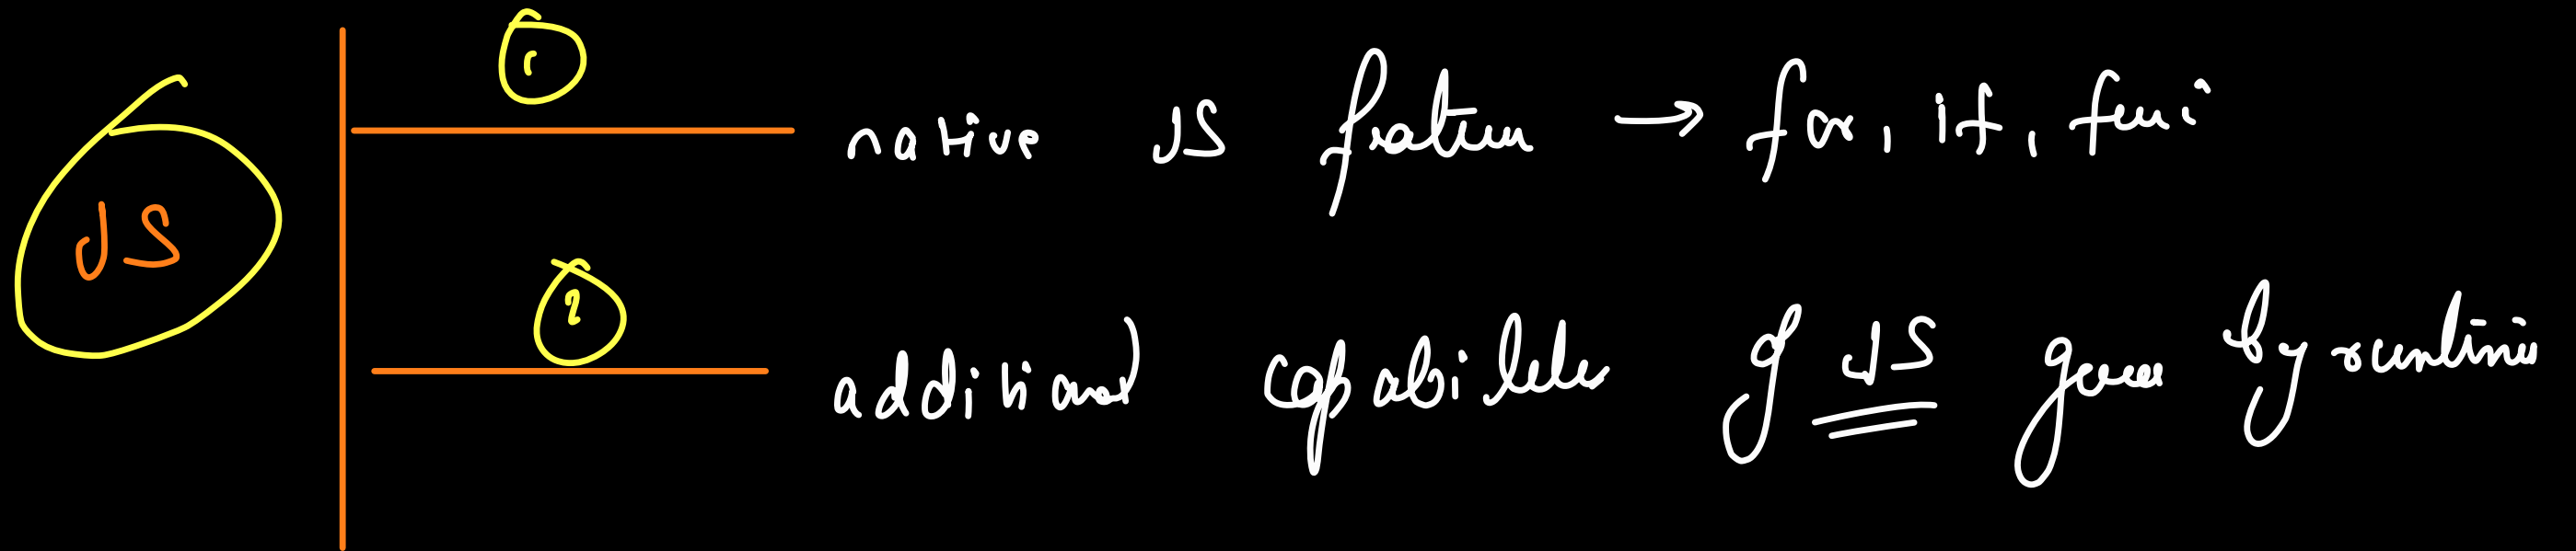 1
native JS feature → for, if, func
JS
2
additional capabilities of JS given by runtime